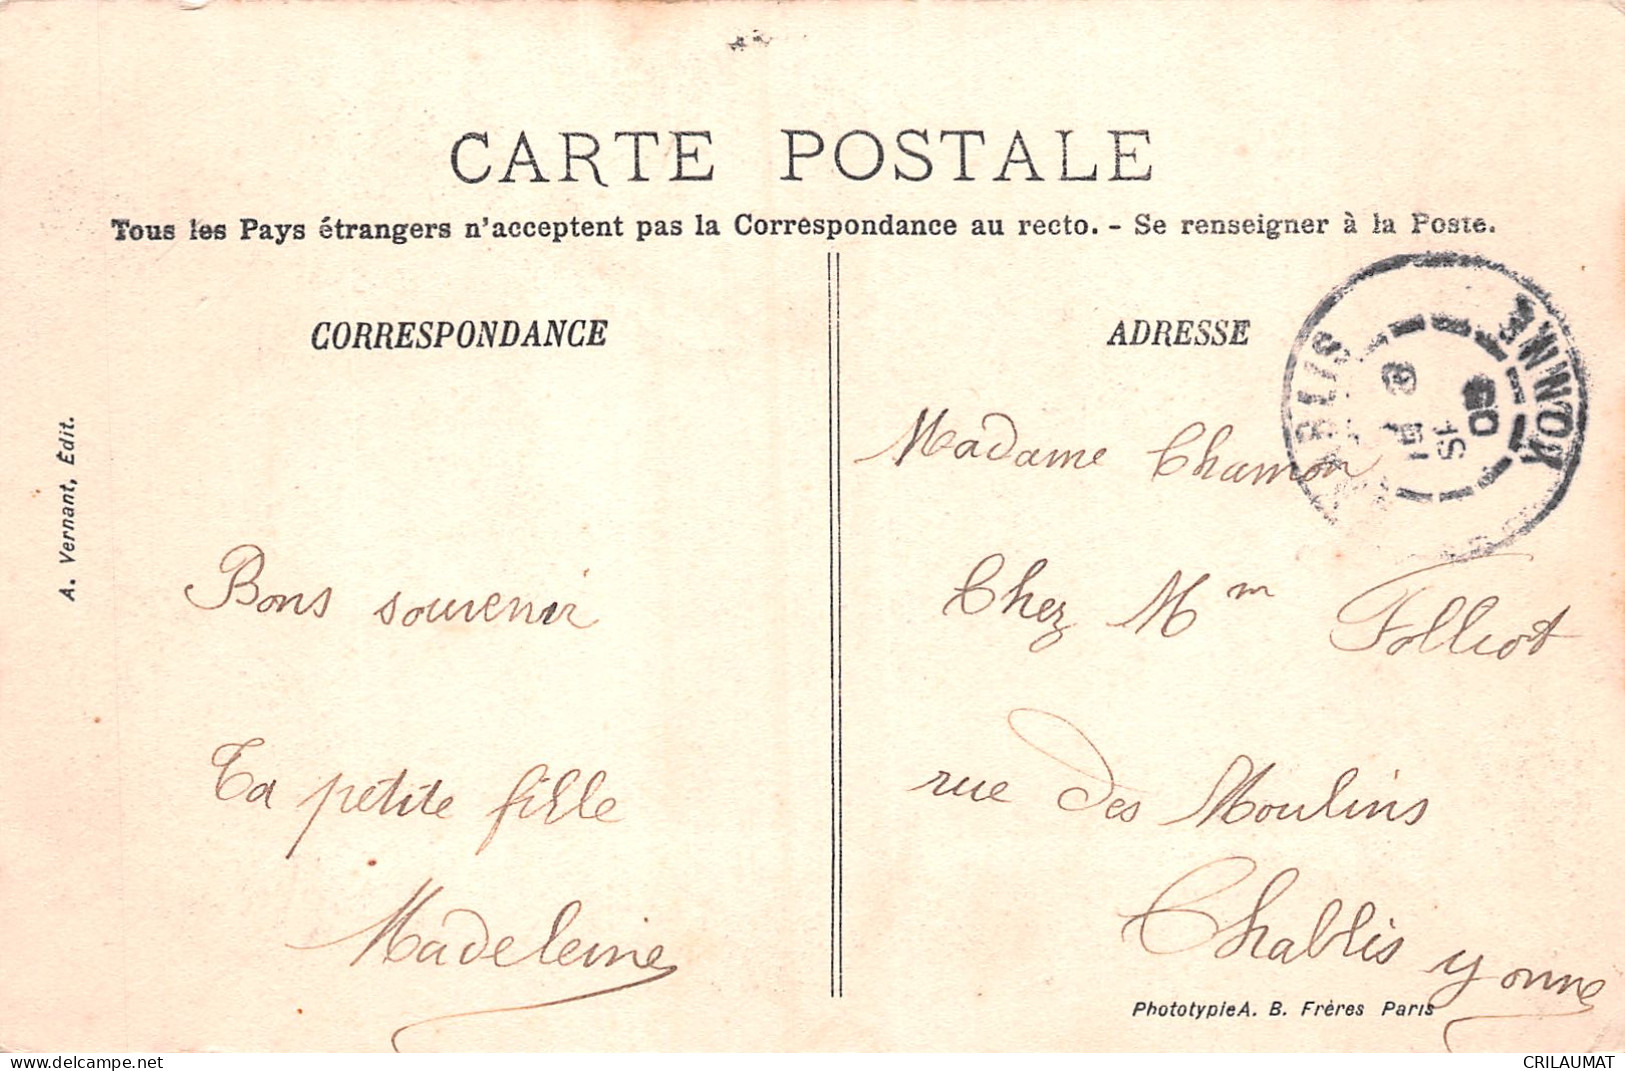 CARTE POSTALE
Tous les Pays étrangers n'acceptent pas la Correspondance au recto. - Se renseigner à la Poste.
CORRESPONDANCE
Bons souvenir
Ta petite fille
Madeleine
A. Vernant, Édit.
ADRESSE
BLIS YONNE
09
Madame Chamon
Chez Mm Folliot
rue des Moulins
Chablis Yonne
Phototypie A. B. Frères Paris
www.delcampe.net
CRILAUMAT